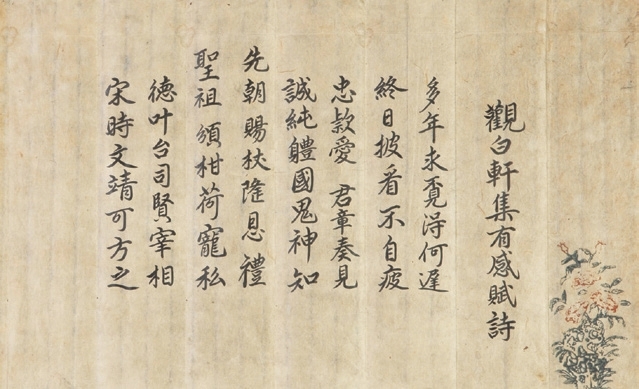 觀白軒集有感賦詩
多年求覓得何遲
終日披看不自疲
忠款愛 君章奏見
誠純軆國鬼神知
先朝賜杖隆恩禮
聖祖頒柑荷寵私
德叶台司賢宰相
宋時文靖可方之